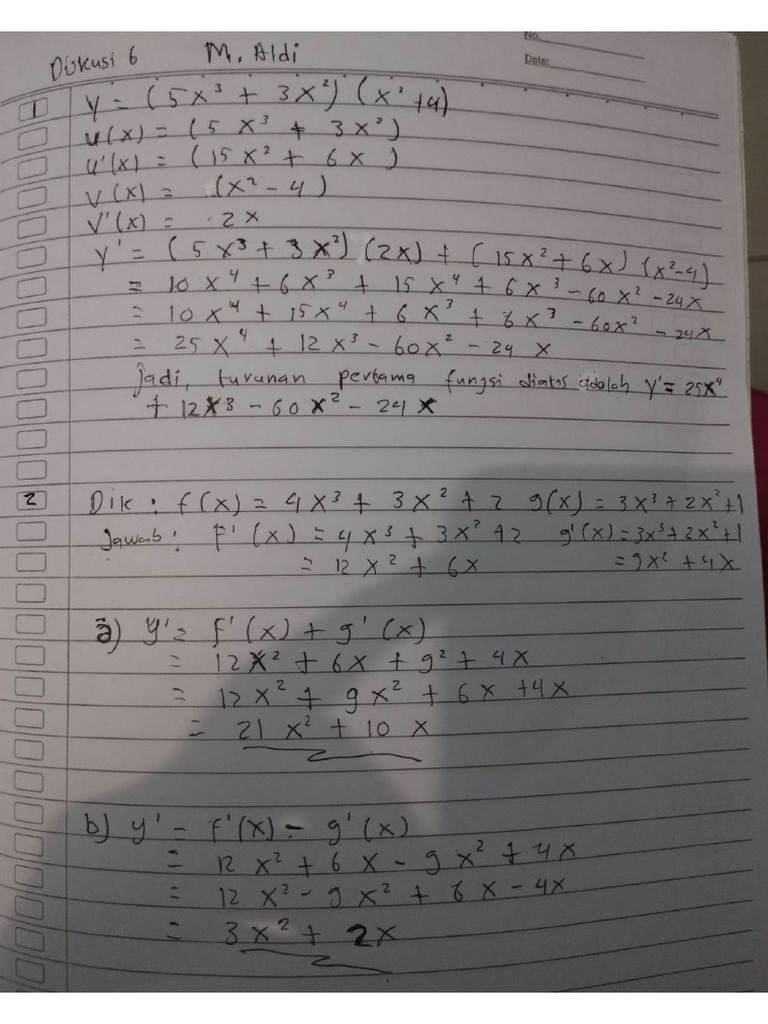 No.
Diskusi 6 M. Aldi
Date:
1 y = (5x³ + 3x²) (x² + 4)
u(x) = (5x³ + 3x²)
u'(x) = (15x² + 6x)
v(x) = (x² - 4)
v'(x) = 2x
y' = (5x³ + 3x²) (2x) + (15x² + 6x) (x² - 4)
= 10x⁴ + 6x³ + 15x⁴ + 6x³ - 60x² - 24x
= 10x⁴ + 15x⁴ + 6x³ + 6x³ - 60x² - 24x
= 25x⁴ + 12x³ - 60x² - 24x
Jadi, turunan pertama fungsi diatas adalah y' = 25x⁴
+ 12x3 - 60x² - 24x
2 Dik : f(x) = 4x³ + 3x² + 2 g(x) = 3x³ + 2x² + 1
Jawab : F'(x) = 4x³ + 3x² + 2 g'(x) = 3x³ + 2x² + 1
= 12x² + 6x = 9x² + 4x
a) y' = f'(x) + g'(x)
= 12x² + 6x + 9² + 4x
= 12x² + 9x² + 6x + 4x
= 21x² + 10x
b) y' = f'(x) - g'(x)
= 12x² + 6x - 9x² + 4x
= 12x² - 9x² + 6x - 4x
= 3x² + 2x